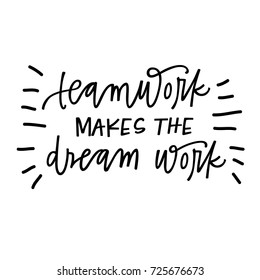 teamwork
MAKES THE
dream work
shutterstock.com · 725676673